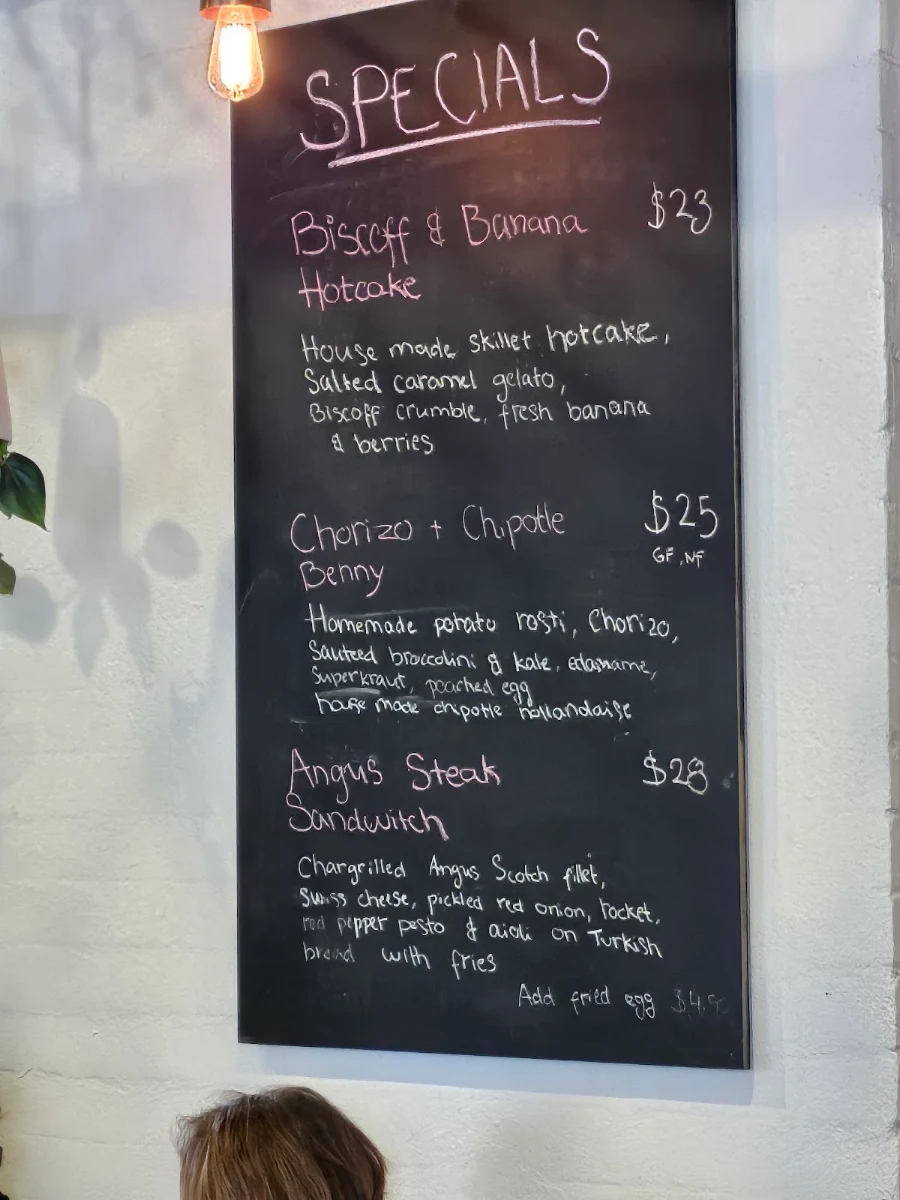 SPECIALS
Biscoff & Banana $23
Hotcake
House made skillet hotcake,
Salted caramel gelato,
Biscoff crumble, fresh banana
& berries
Chorizo + Chipotle $25
GF, NF
Benny
Homemade potato rosti, Chorizo,
Sauteed broccolini & kale, edamame,
Superkraut, poached egg
house made chipotle hollandaise
Angus Steak $28
Sandwitch
Chargrilled Angus Scotch fillet,
Swiss cheese, pickled red onion, rocket,
red pepper pesto & aioli on Turkish
bread with fries
Add fried egg